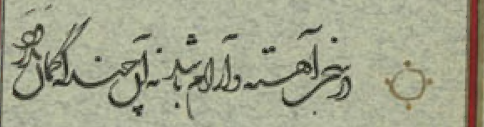 در سخن آهسته و آرام باشد نه آن چندان که گمان